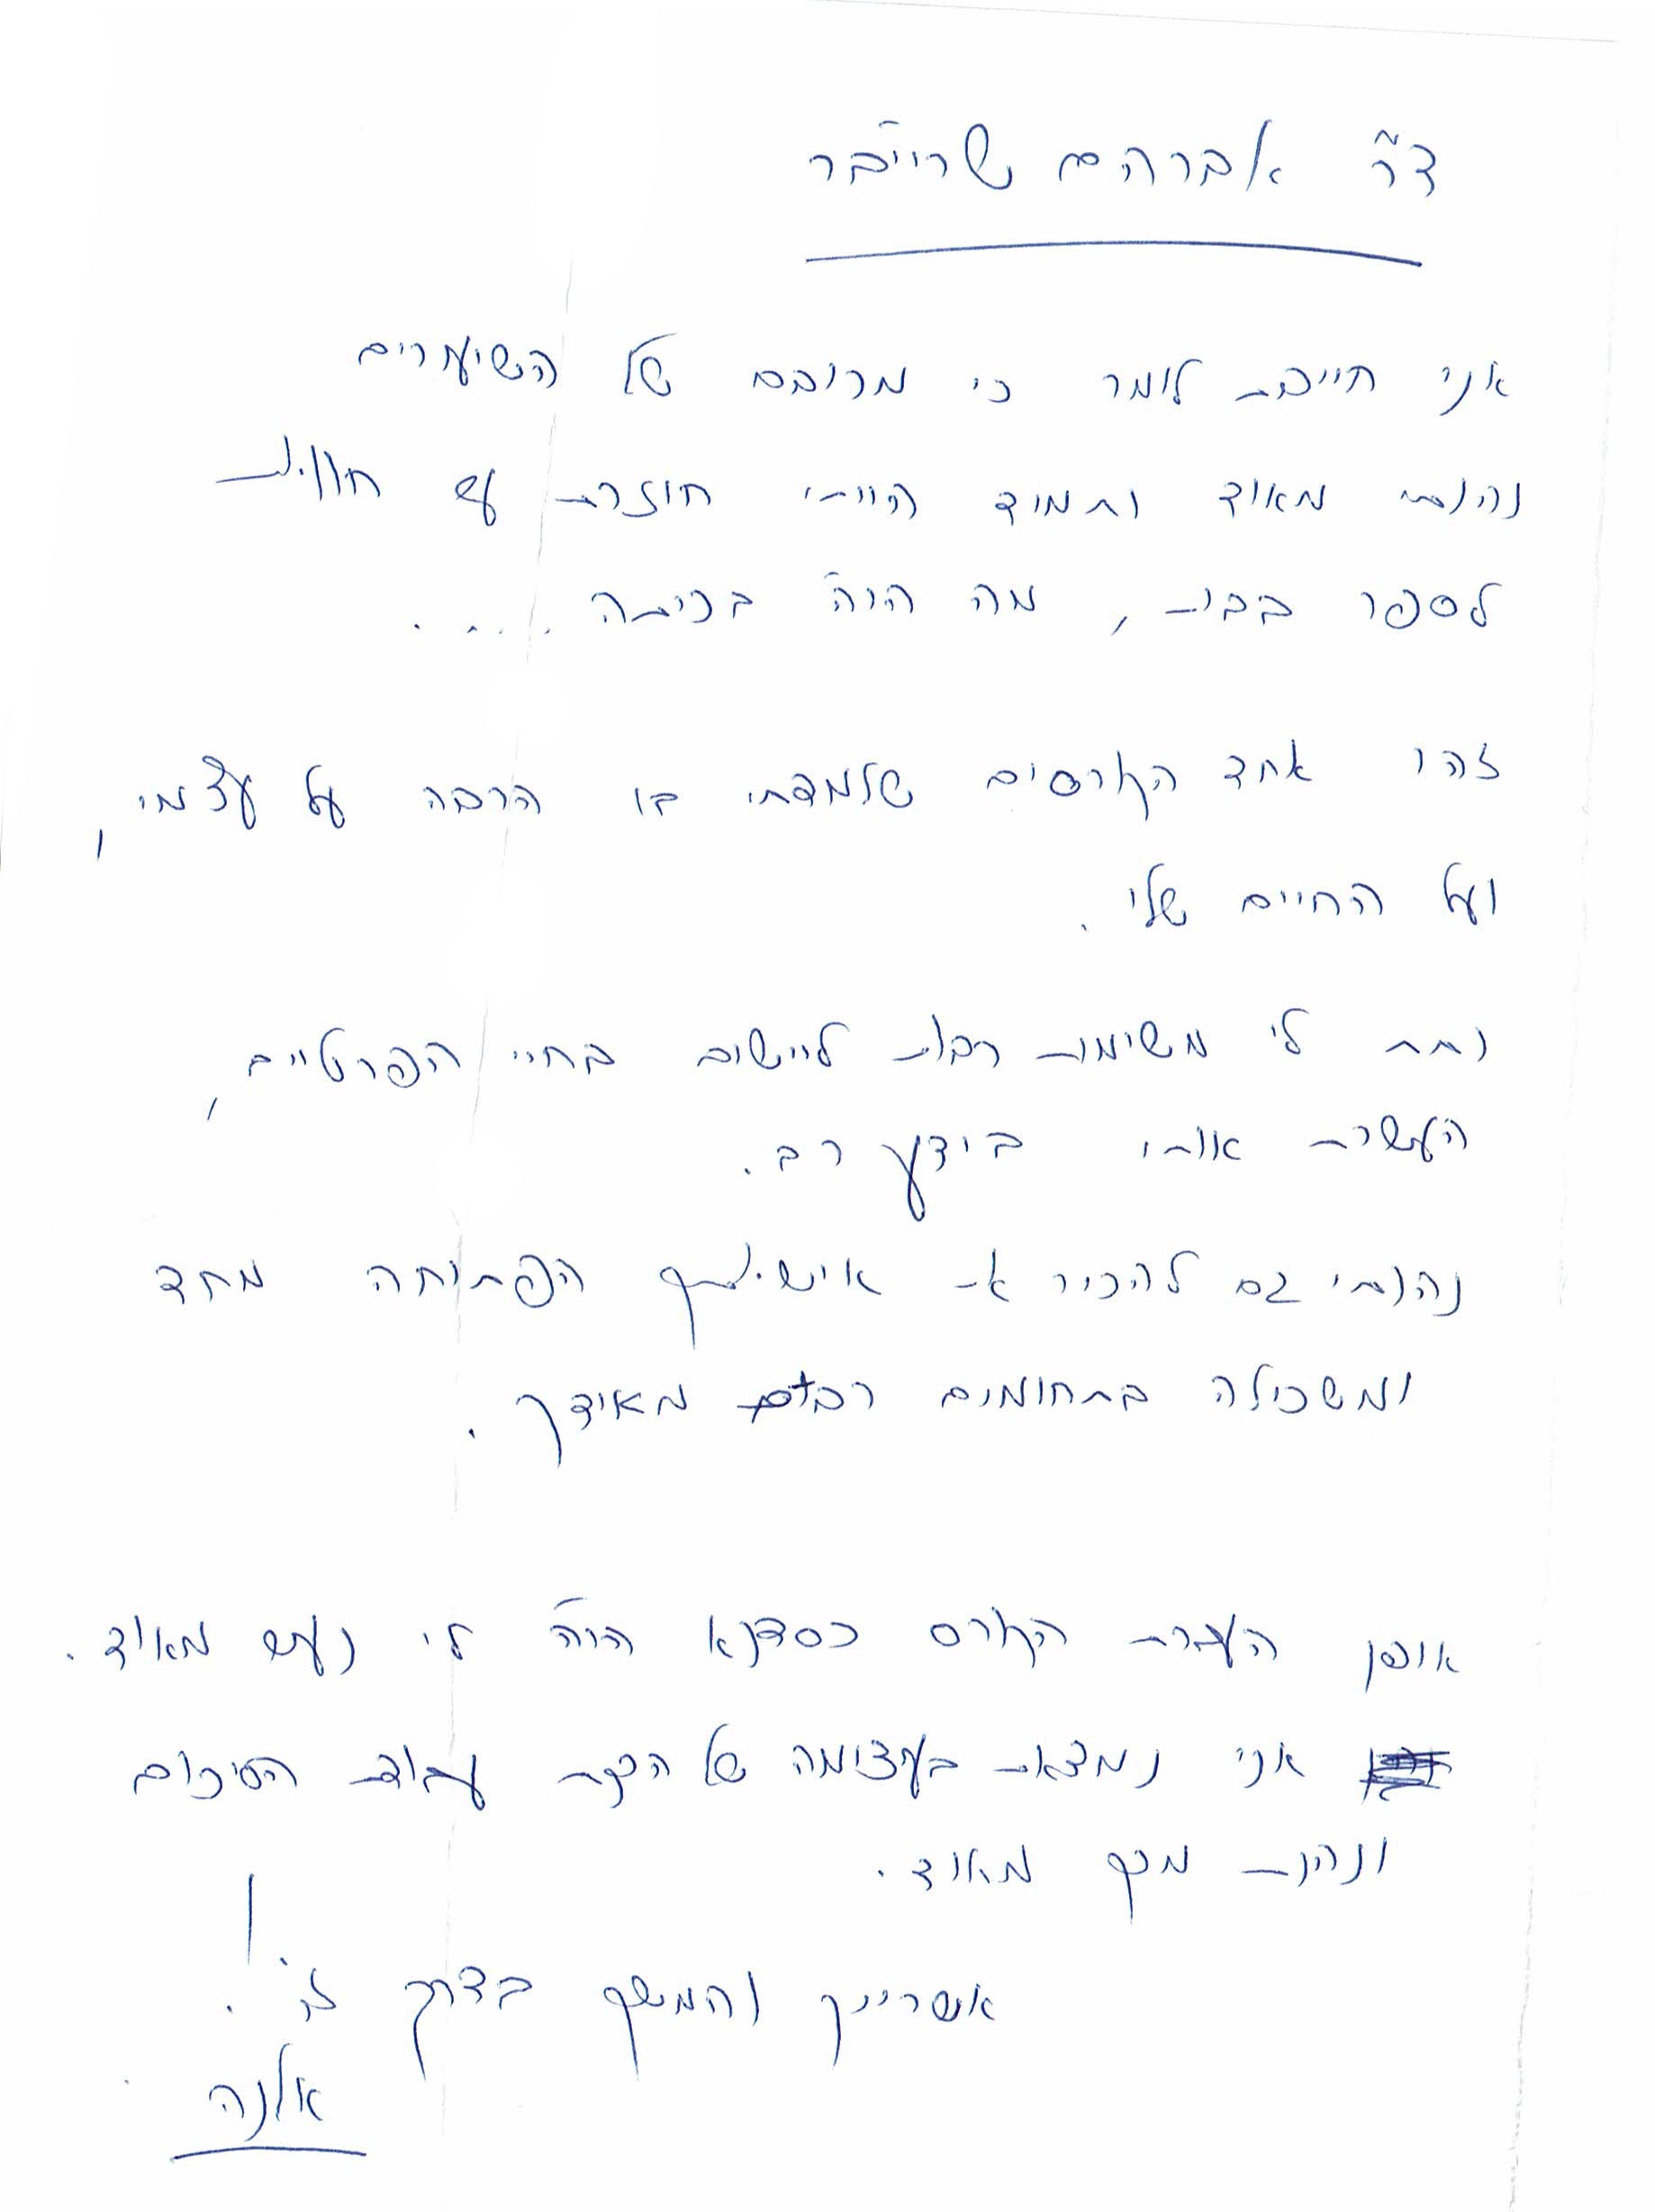 ד"ר אברהם שרייבר
אני חייבת לומר כי מרובם של השיעורים
נהנתי מאוד ותמיד הייתי חוזרת עם חוויות
לספר בבית, מה היה בכיתה ....
זהו אחד הקורסים שלמדתי בו הרבה על עצמי,
ועל החיים שלי.
נתת לי משימות רבות ליישום בחיי הפרטיים,
העשרת אותי בידע רב.
נהנתי גם להכיר את אישיותך הפתוחה מחד
ומשכילה בתחומים רבים מאידך.
אופן העברת הקורס כסדנא היה לי נעים מאוד.
אני נמצאת בעיצומה של הכנת עבודת הסיכום
ונהנת מכך מאוד.
אשרייך והמשך בדרך זו!
אלנה